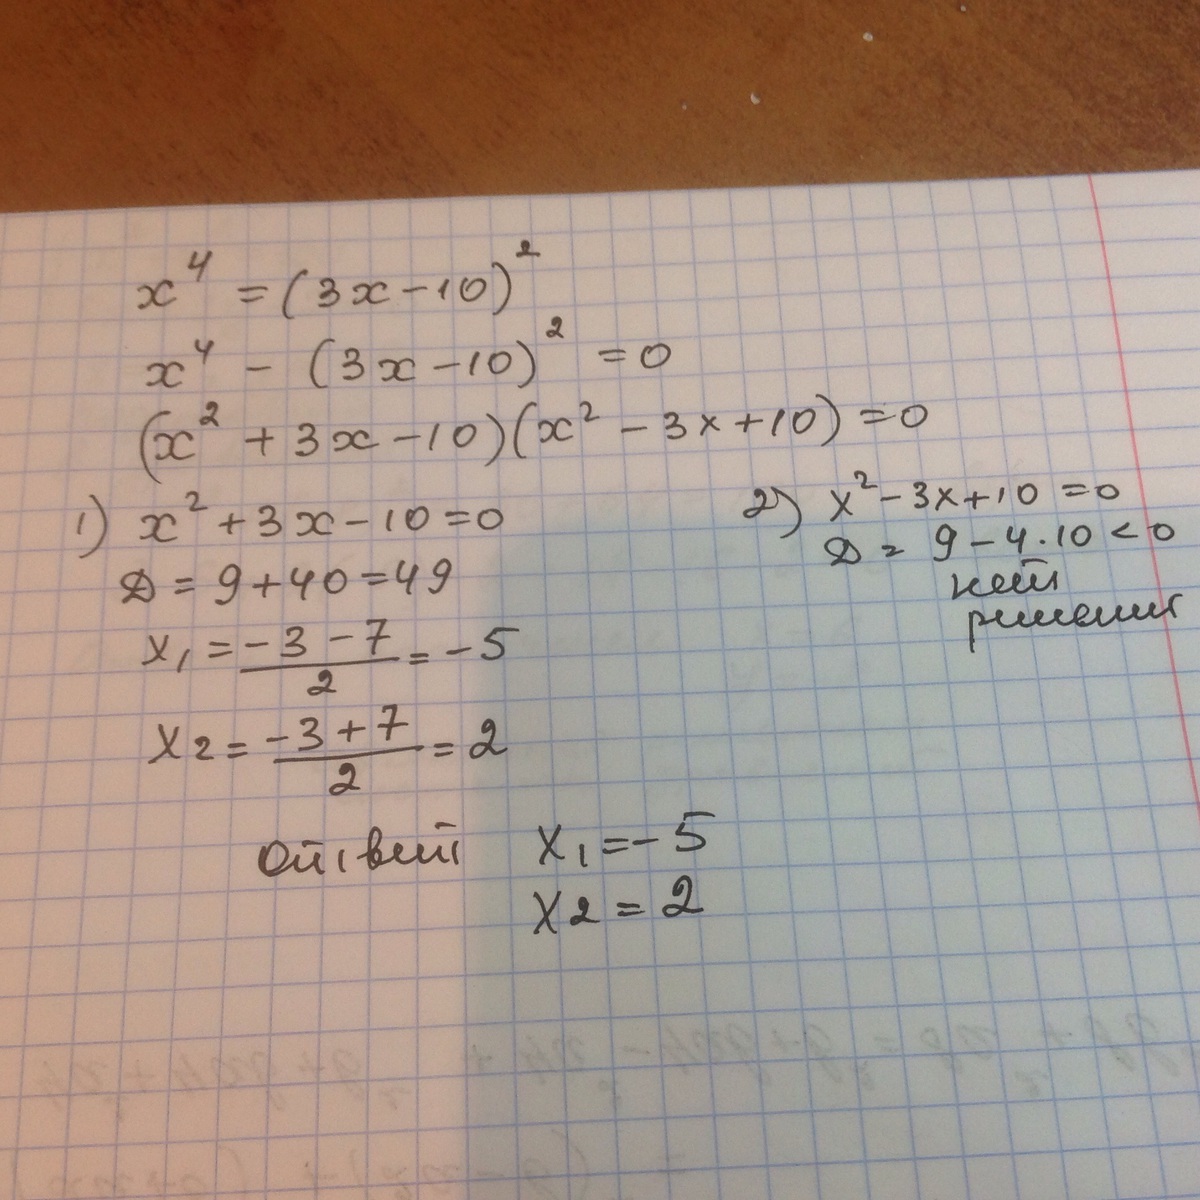 x⁴ = (3x - 10)²
x⁴ - (3x - 10)² = 0
(x² + 3x - 10)(x² - 3x + 10) = 0
1) x² + 3x - 10 = 0
D = 9 + 40 = 49
x₁ = (-3 - 7)/2 = -5
x₂ = (-3 + 7)/2 = 2
2) x² - 3x + 10 = 0
D = 9 - 4·10 < 0
нет
решения
Ответ x₁ = -5
x₂ = 2